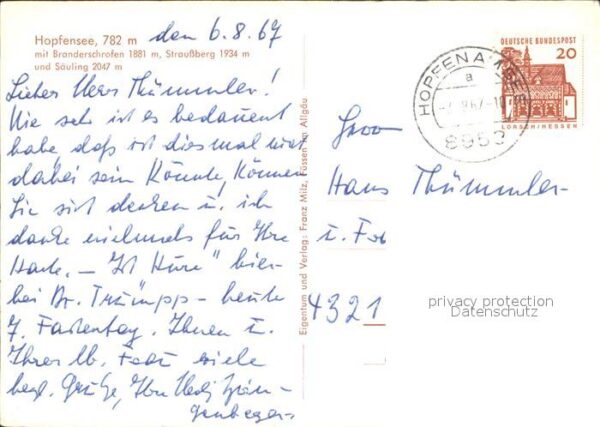 Hopfensee, 782 m
mit Branderschrofen 1881 m, Straußberg 1934 m
und Säuling 2047 m
den 6.8.67
Lieber Herr Thümmler!
Wie sehr ist es bedauert
habe, daß ich diesmal nicht
dabei sein konnte, können
Sie sich denken u. ich
danke vielmals für Ihre
Karte. – Ist Kure" hier-
bei Dr. Trümpp – heute
7. Fastentag. Ihnen u.
Ihrer lb. Frau viele
herzl. Grüße, Ihr
Eigentum und Verlag: Franz Milz, Füssen im Allgäu
DEUTSCHE BUNDESPOST
20
LORSCH/HESSEN
HOPFEN A. SEE
a
8953
Herrn
Hans Thümmler
u. Frau
4321
privacy protection
Datenschutz